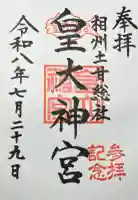 奉拝
相州土甘総社
皇大神宮
令和八年七月二十九日
参拝
記念